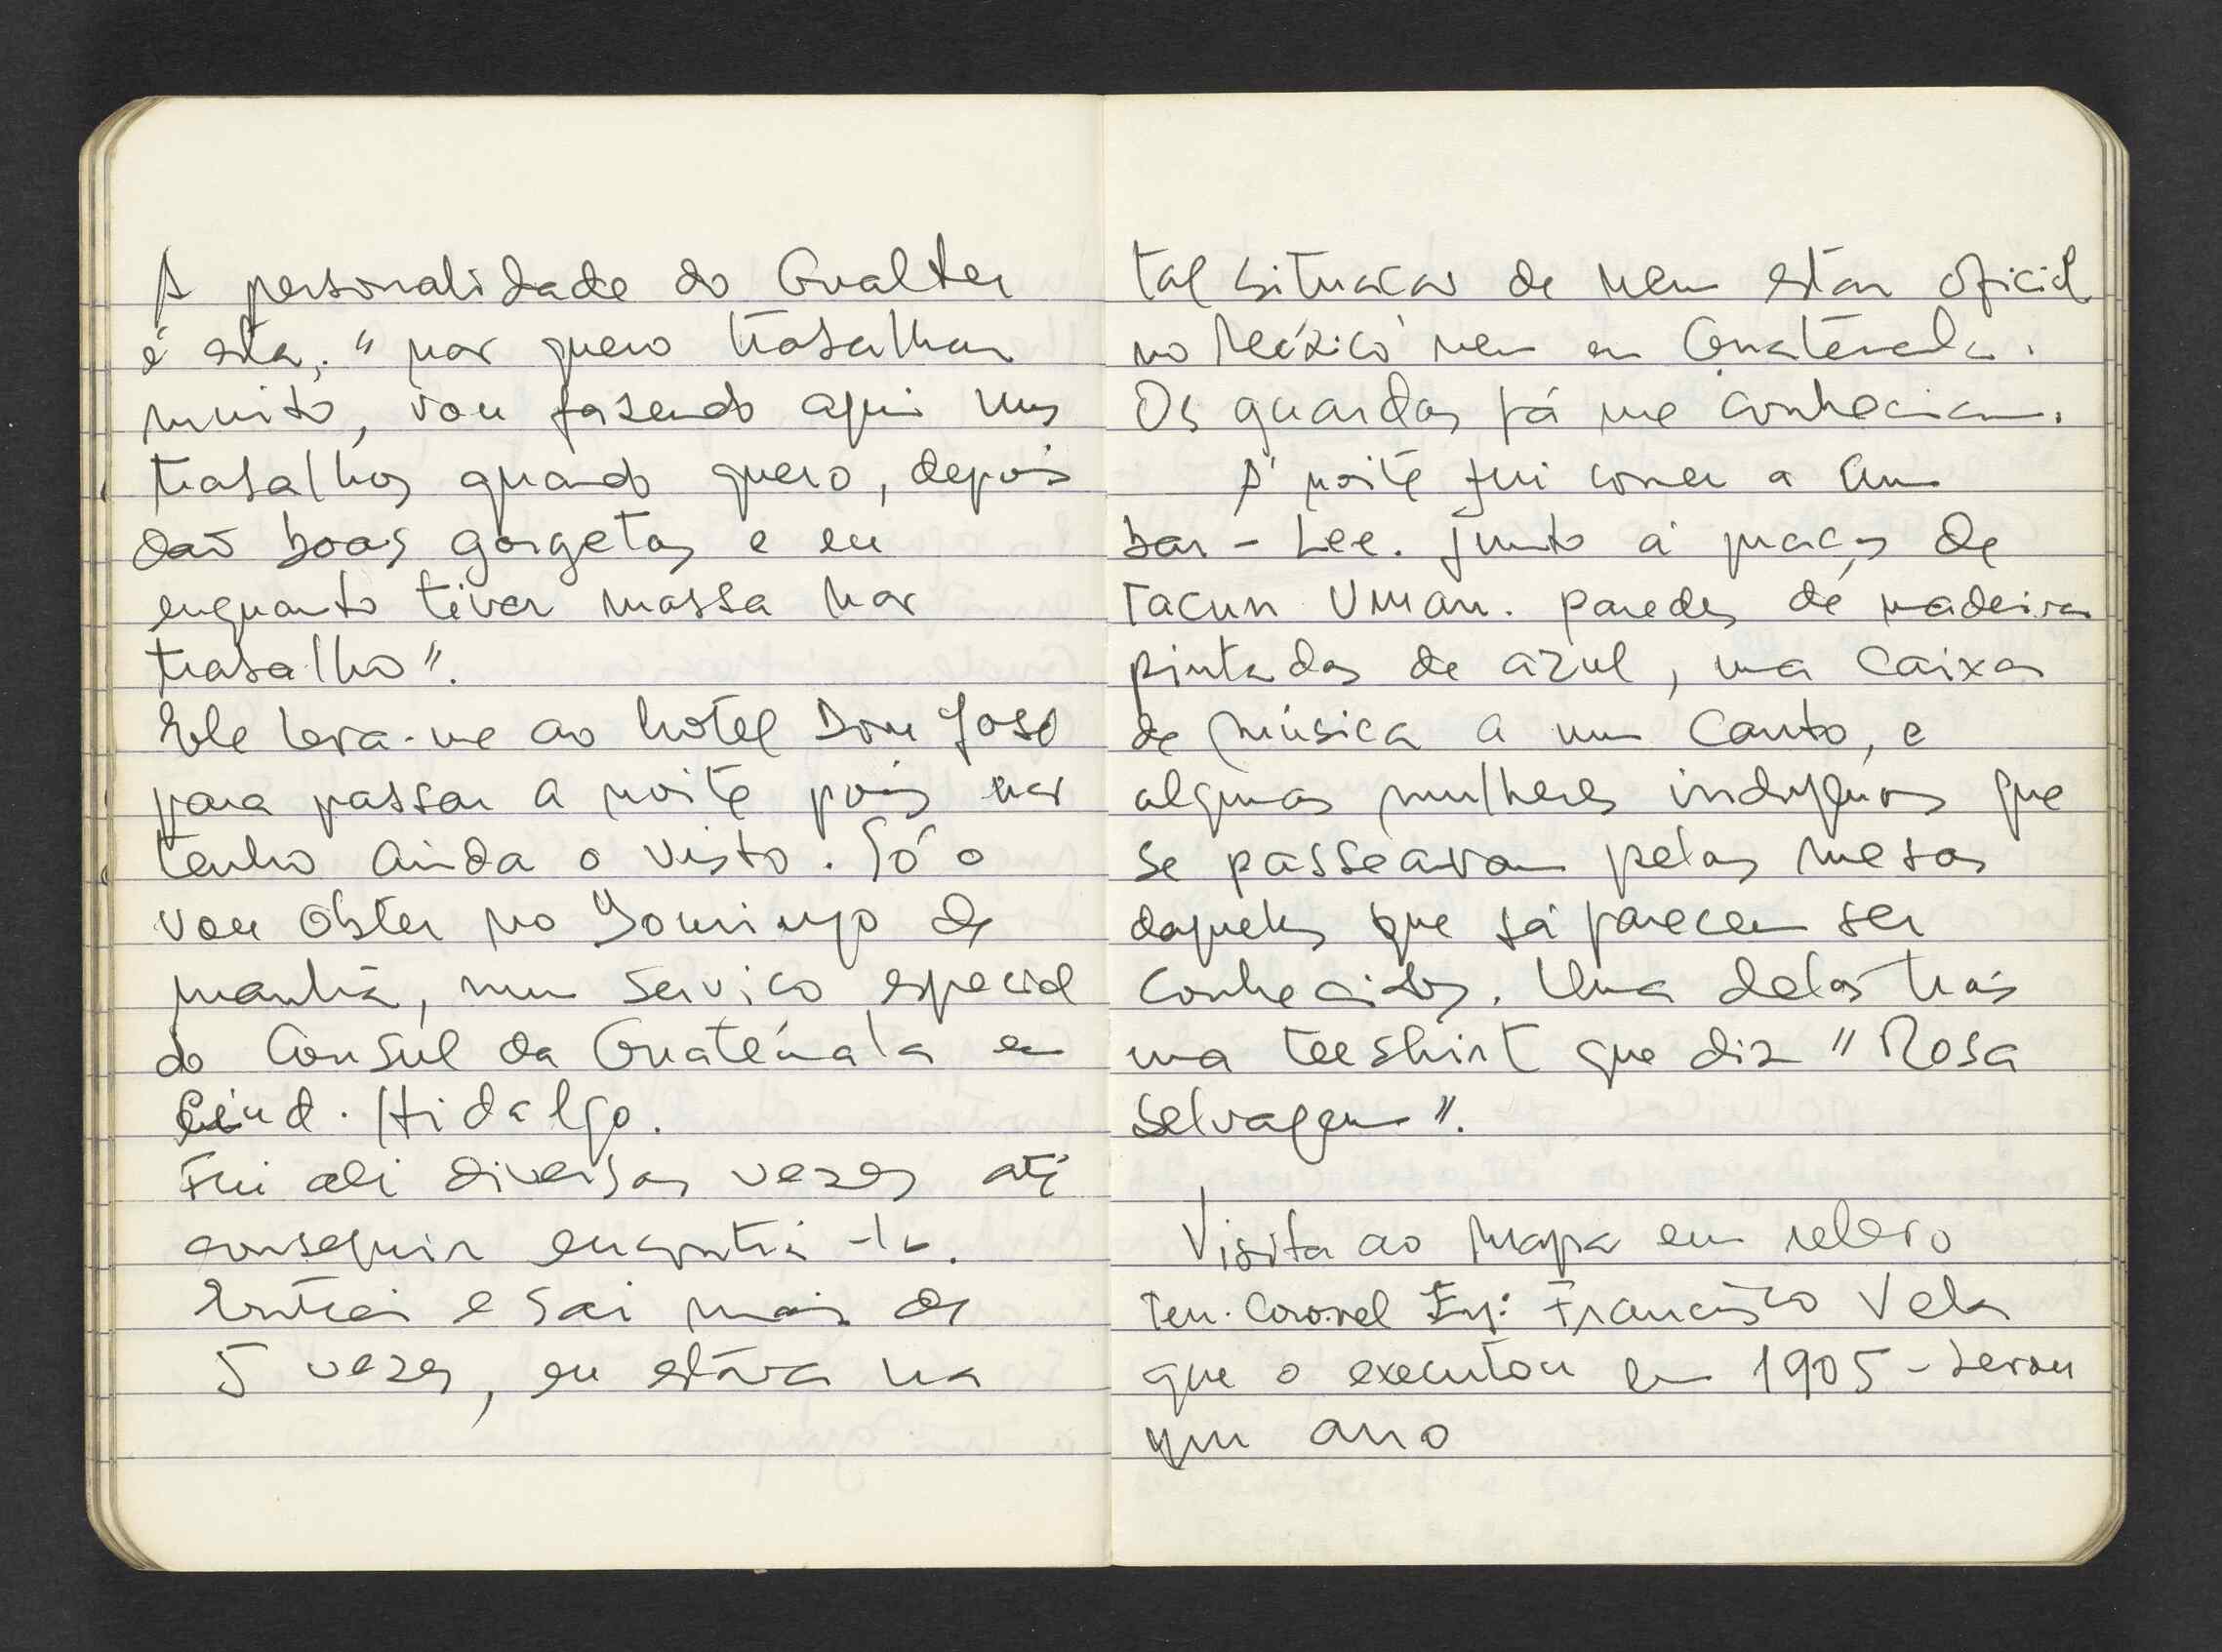 A personalidade do Gualter
é esta, "não quero trabalhar
muito, vou fazendo aqui uns
trabalhos quando quero, depois
dão boas gorgetas e eu
enquanto tiver massa não
trabalho".
Ele leva-me ao hotel Dom José
para passar a noite pois não
tenho ainda o visto. Só o
vou obter no Domingo de
manhã, num serviço especial
do Consul da Guatémala em
Ciud. Hidalgo.
Fui ali diversas vezes até
conseguir encontrá-lo.
Entrei e saí mais de
5 vezes, eu estava na
tal situação de nem estar oficial
no México nem em Guatemala.
Os guardas já me conheciam.
À noite fui comer a um
bar - Lee. Junto à praça de
Tacun Uman. paredes de madeira
pintadas de azul, uma caixa
de música a um canto, e
algumas mulheres indígenas que
se passeavam pelas mesas
daqueles que já parecem ser
conhecidos. Uma delas trás
uma teeshirt que diz "Rosa
Selvagem".
Visita ao Mapa em relevo
Ten. Coronel Eng: Francisco Vela
que o executou em 1905 - Levou
um ano